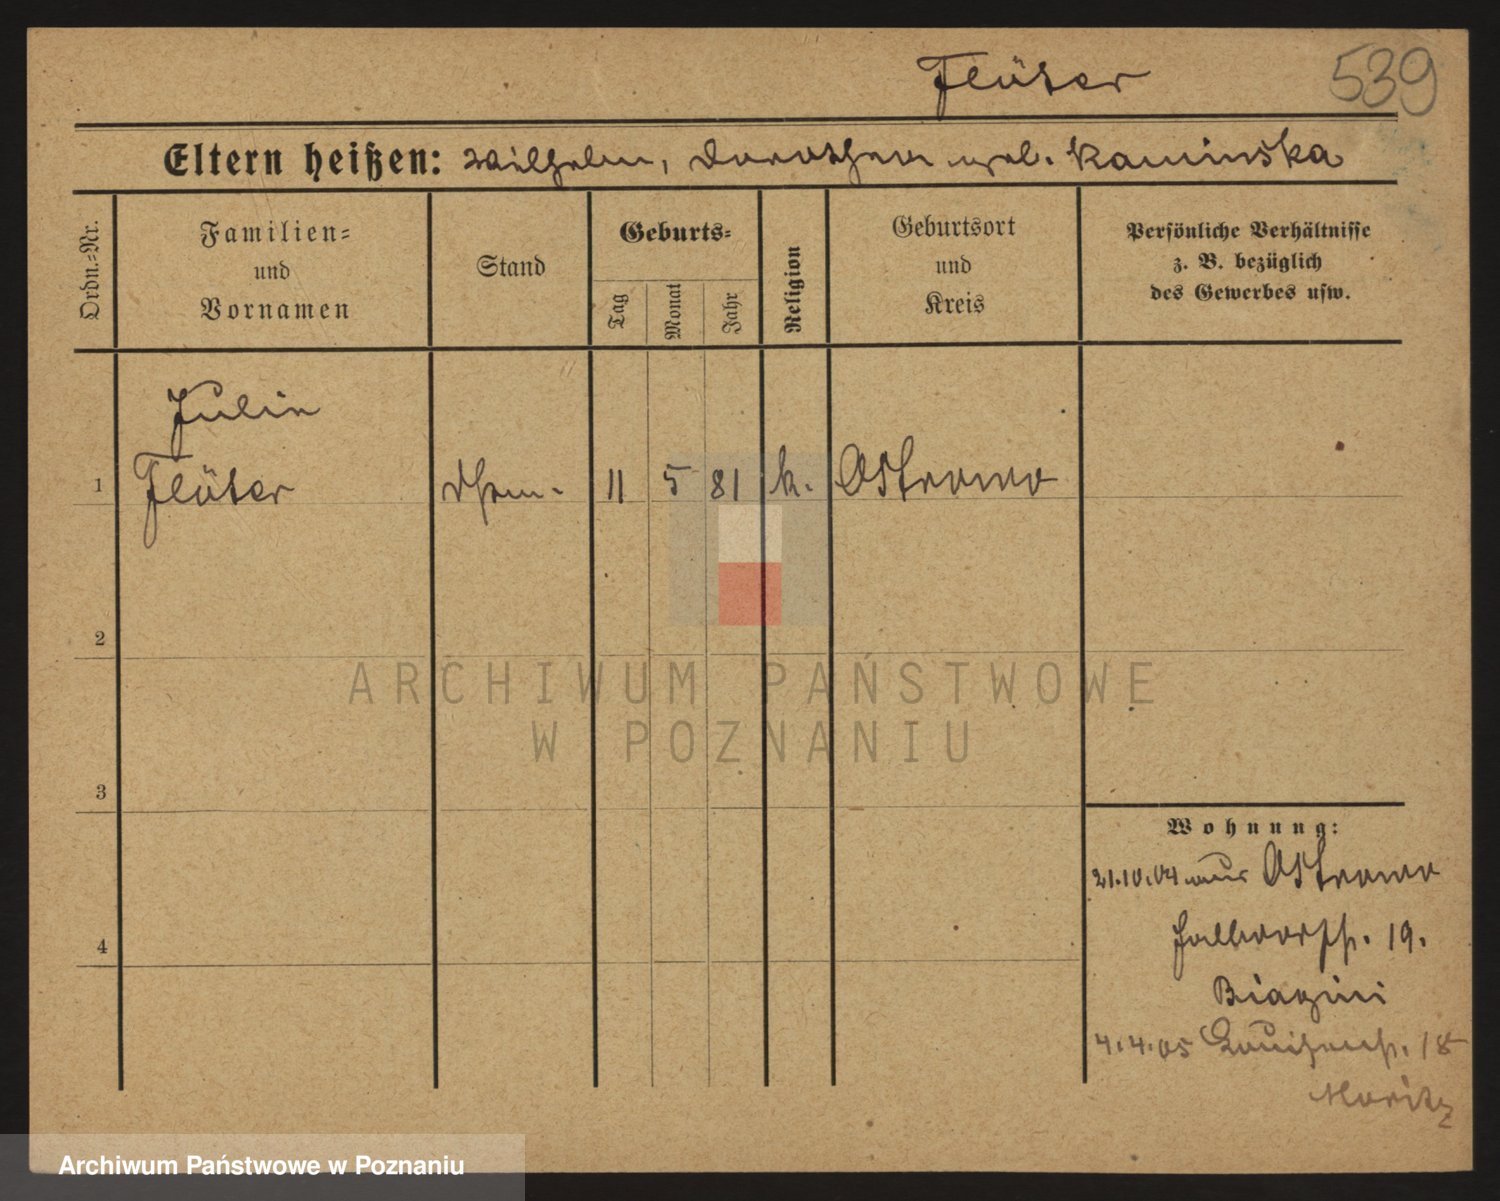 Flüter
539
Eltern heißen: Wilhelm, Dorothea geb. Kaminska
Ordn.-Nr.
Familien-
und
Vornamen
Stand
Geburts-
Tag
Monat
Jahr
Religion
Geburtsort
und
Kreis
Persönliche Verhältnisse
z. B. bezüglich
des Gewerbes usw.
Julia
1 Flüter 11 5 81 k. Ostrowo
2
3
4
Wohnung:
21.10.04 aus Ostrowo
19.
Biagini
4.4.05 Louisenstr. 18
Moritz
ARCHIWUM PAŃSTWOWE
W POZNANIU
Archiwum Państwowe w Poznaniu